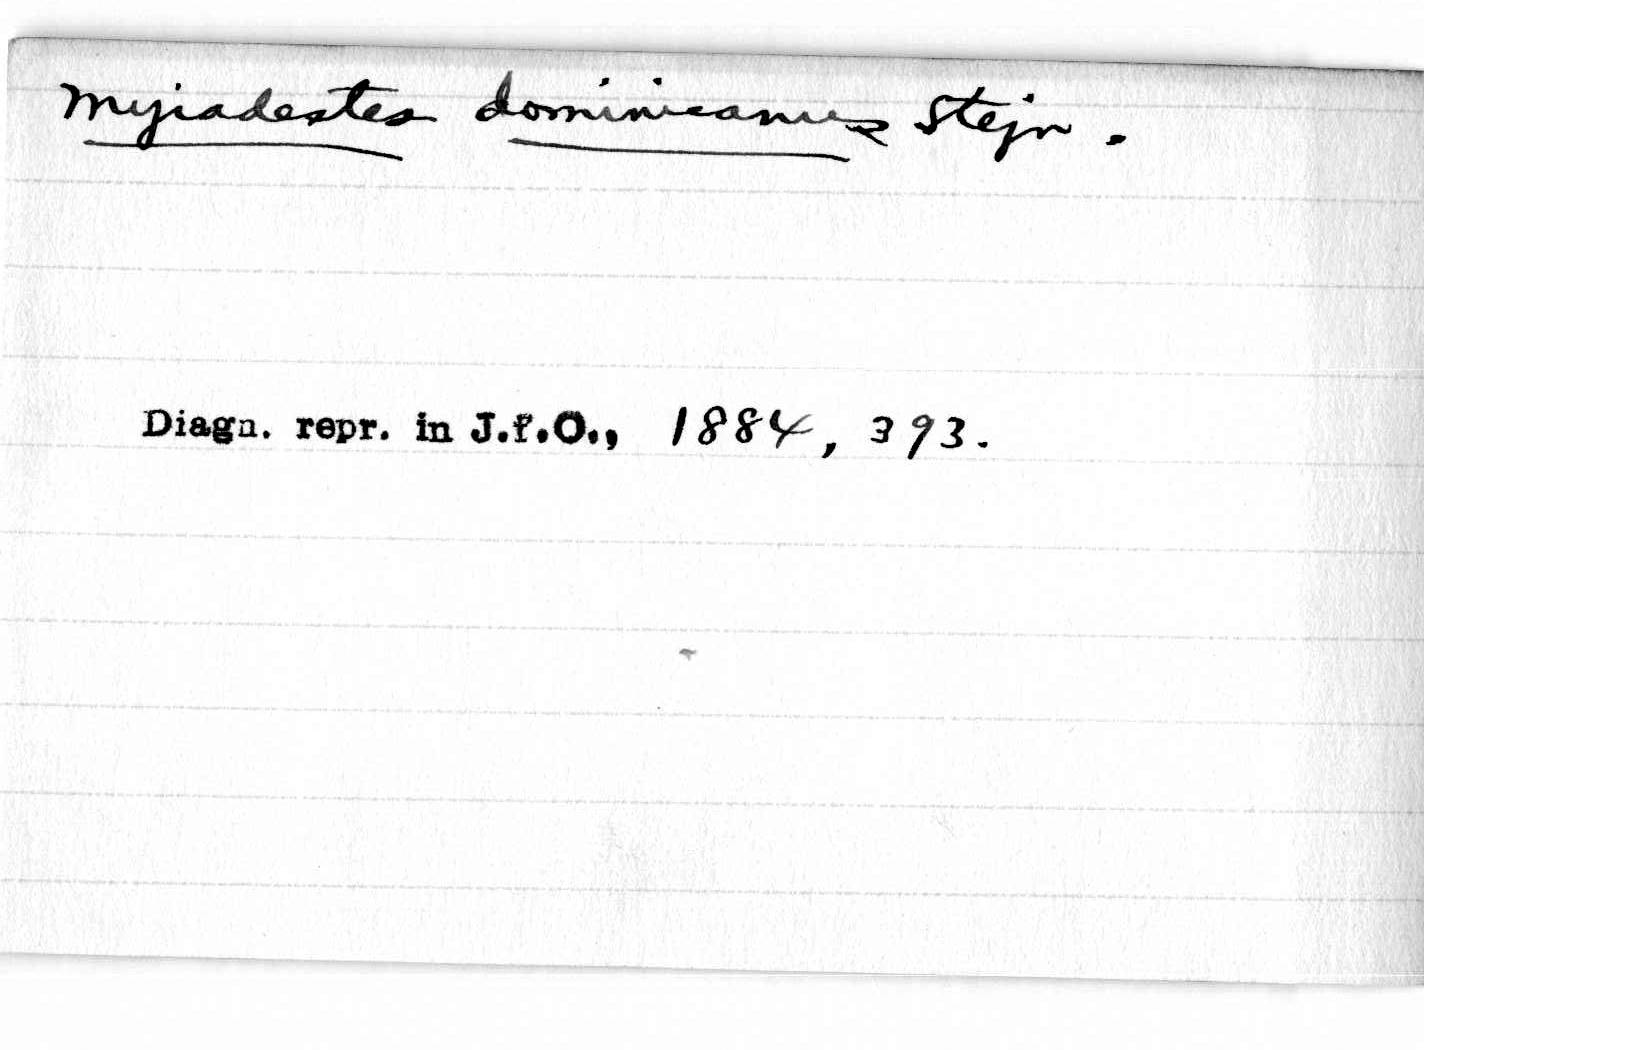 Myiadestes dominicanus Stejn.
Diagn. repr. in J.f.O., 1884, 393.